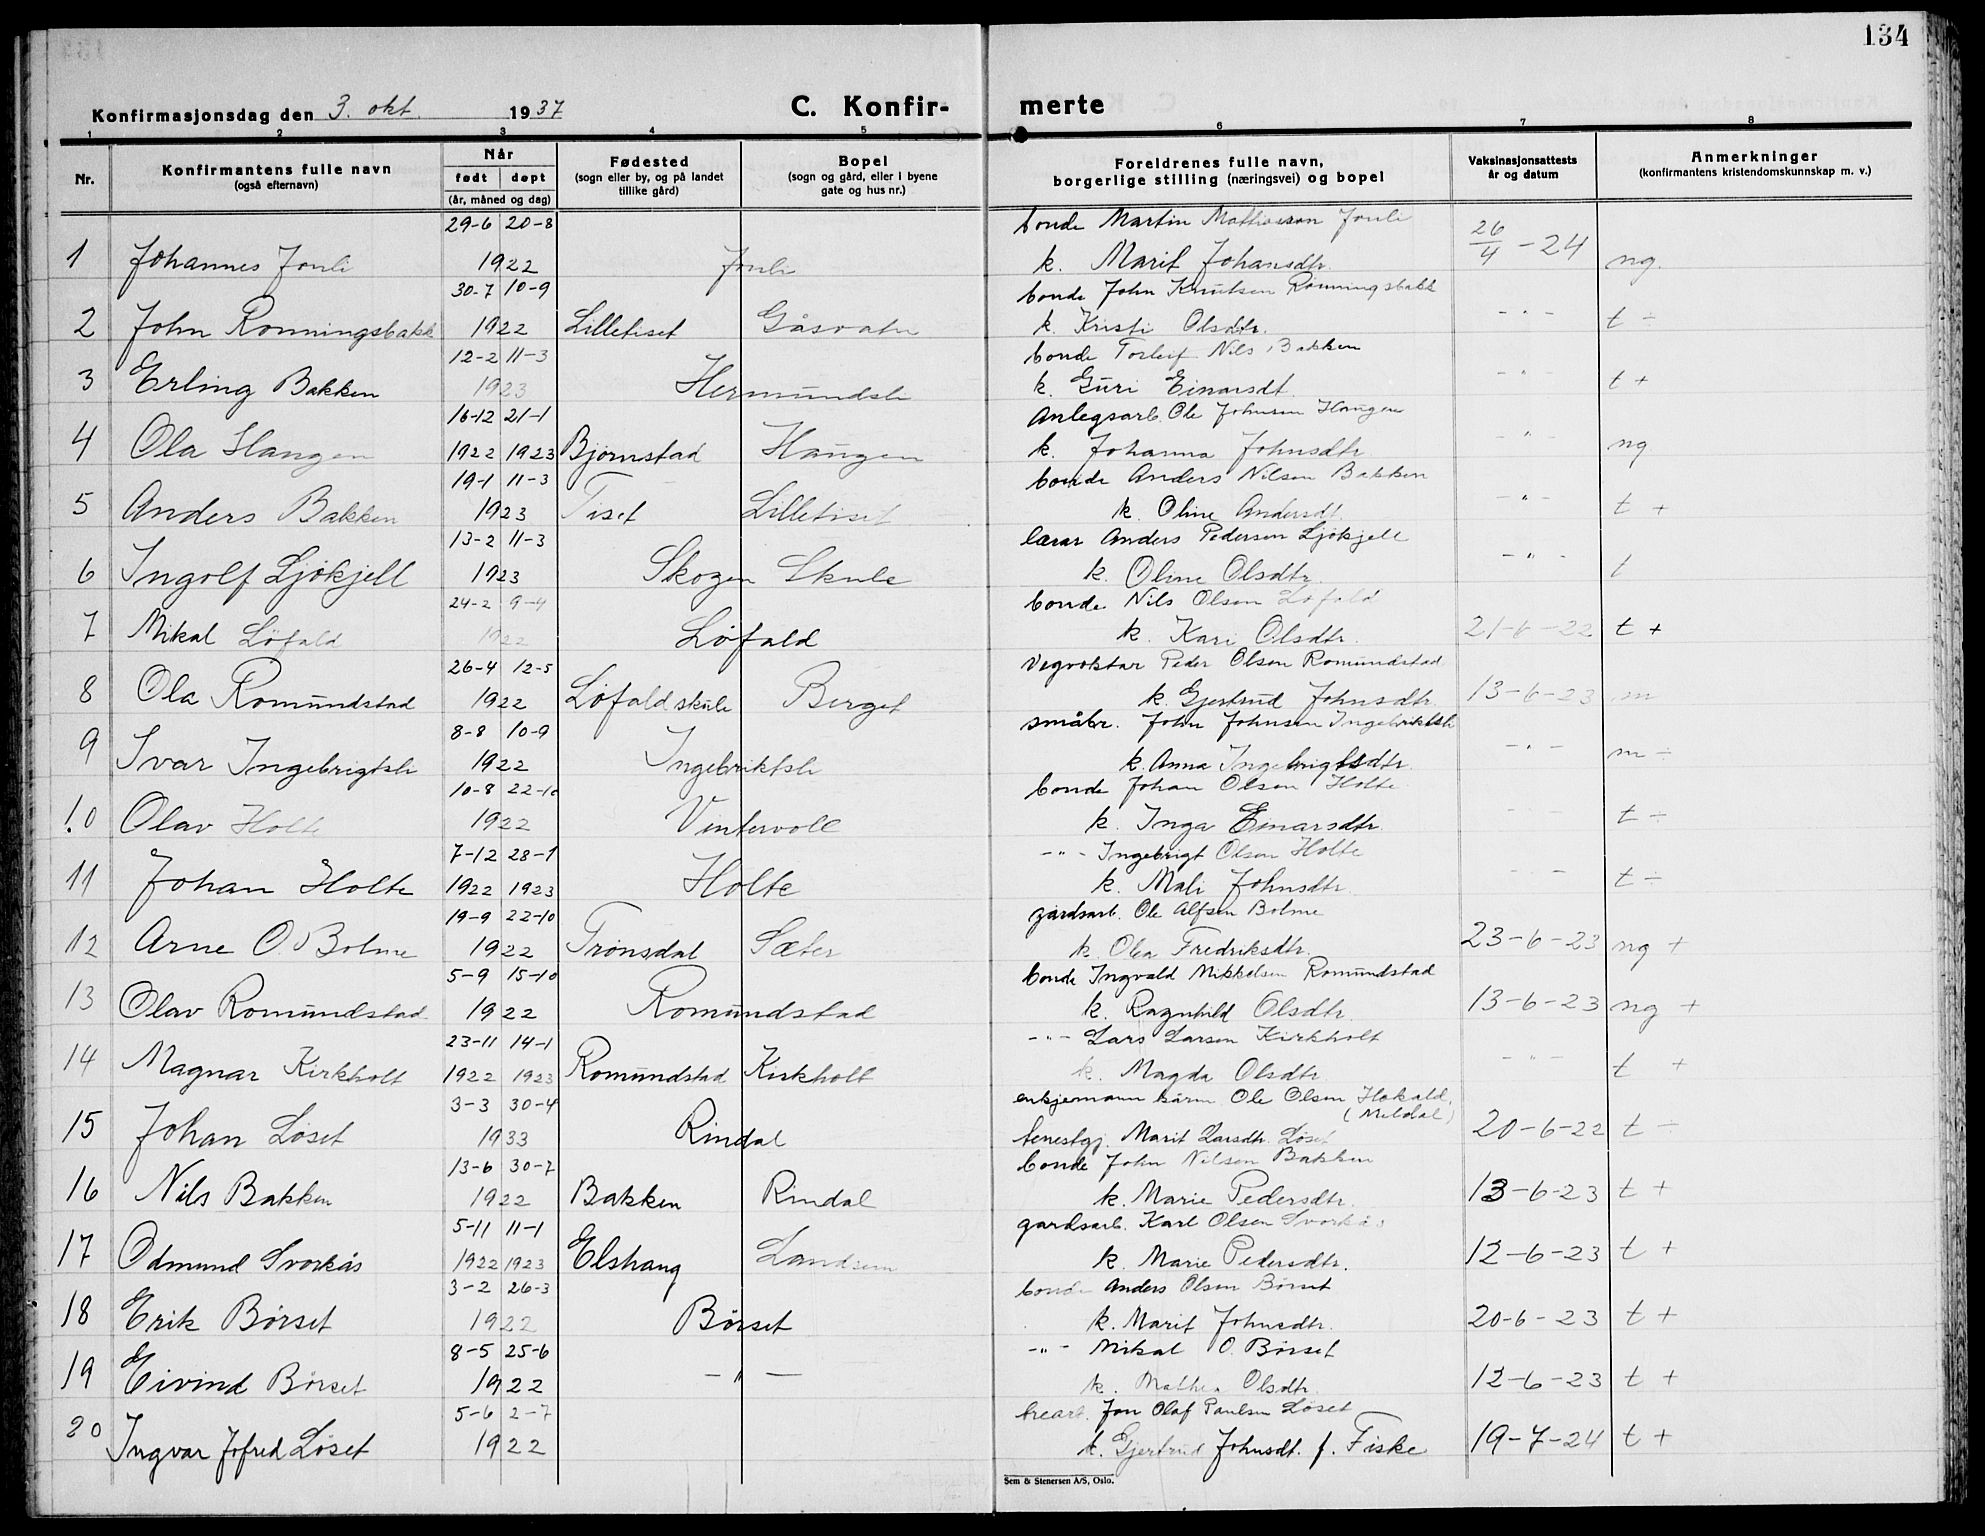 134
Konfirmasjonsdag den 3. okt. 1937 C. Konfir- merte
1 2 3 4 5 6 7 8
Nr. Konfirmantens fulle navn (også efternavn) Når født døpt (år, måned og dag) Fødested (sogn eller by, og på landet tillike gård) Bopel (sogn og gård, eller i byene gate og hus nr.) Foreldrenes fulle navn, borgerlige stilling (næringsvei) og bopel Vaksinasjonsattests år og datum Anmerkninger (konfirmantens kristendomskunnskap m. v.)
29-6 20-8 bonde Martin
1 Johannes Jonli 1922 Jonli k. Marit Johansdtr. 26/4-24 ng.
30-7 10-9 bonde John Knutsen Romningsbakk
2 John Romningsbakk 1922 Lilletiset Gåsvatn k. Kristi Olsdtr. -"- t ÷
12-2 11-3 bonde Torleif Nils Bakken
3 Erling Bakken 1923 Hermundsli k. Guri Einarsdt. -"- t +
16-12 21-1 Anlegsarb. Ole Johnsen Haugen
4 Ola Haugen 1922 1923 Bjørnstad Haugen k. Johanna Johnsdtr -"- ng
19-1 11-3 bonde Anders Nilsen Bakken
5 Anders Bakken 1923 Tiset Lilletiset k. Oline Andersdt. -"- t +
13-2 11-3 lærar Anders Pedersen Ljøkjell
6 Ingolf Ljøkjell 1923 Skogen Skule k. Oline Olsdtr. -"- t
24-2 9-4 bonde Nils Olsen Løfald
7 Mikal Løfald 1922 Løfald k. Kari Olsdtr. 21-6-22 t +
26-4 12-5 Vegvoktar Peder Olsen Romundstad
8 Ola Romundstad 1922 Løfald skule Berget k. Gjertrud Johnsdtr. 13-6-23 m
8-8 10-9 småbr. John Johnsen Ingebriktsli
9 Ivar Ingebrigtsli 1922 Ingebriktsli k. Anna Ingebrigtsdtr. -"- m ÷
10-8 22-10 bonde Johan Olsen Holte
10 Olav Holte 1922 Vintervoll k. Inga Einarsdtr. - - t ÷
7-12 28-1 -"- Ingebrigt Olsen Holte
11 Johan Holte 1922 1923 Holte k. Mali Johnsdtr. - - t ÷
19-9 22-10 gårdsarb. Ole Alfsen Bolme
12 Arne O. Bolme 1922 Trønsdal Sæter k. Olea Fredriksdtr. 23-6-23 ng +
5-9 15-10 bonde Ingvald Mikkelsen Romundstad
13 Olav Romundstad 1922 Romundstad k. Ragnhild Olsdtr. 13-6-23 ng +
23-11 14-1 -"- Lars Larsen Kirkholt
14 Magnar Kirkholt 1922 1923 Romundstad Kirkholt k. Magda Olsdtr -"- t +
3-3 30-4 enkjemann Ole Olsen
(Meldal)
15 Johan Løset 1933 Rindal tenestgj. Marit Larsdtr. Løset 20-6-22 t ÷
13-6 30-7 bonde John Nilsen Bakken
16 Nils Bakken 1922 Bakken Rindal k. Marie Pedersdtr. 13-6-23 t +
5-11 11-1 gardsarb. Karl Olsen Svorkås
17 Odmund Svorkås 1922 1923 Elshaug Landsem k. Marie Pedersdtr. 12-6-23 t +
3-2 26-3 bonde Anders Olsen Børset
18 Erik Børset 1922 Børset k. Marit Johnsdtr. 20-6-23 t +
8-5 25-6 -"- Mikal O. Børset
19 Eivind Børset 1922 -"- k. Olsdtr. 12-6-23 t +
5-6 2-7 Jon Olaf Paulsen Løset
20 Ingvar Jofred Løset 1922 k. Gjertrud Johnsdt. f. Fiske 19-7-24 t +
Sem & Stenersen A/S, Oslo.